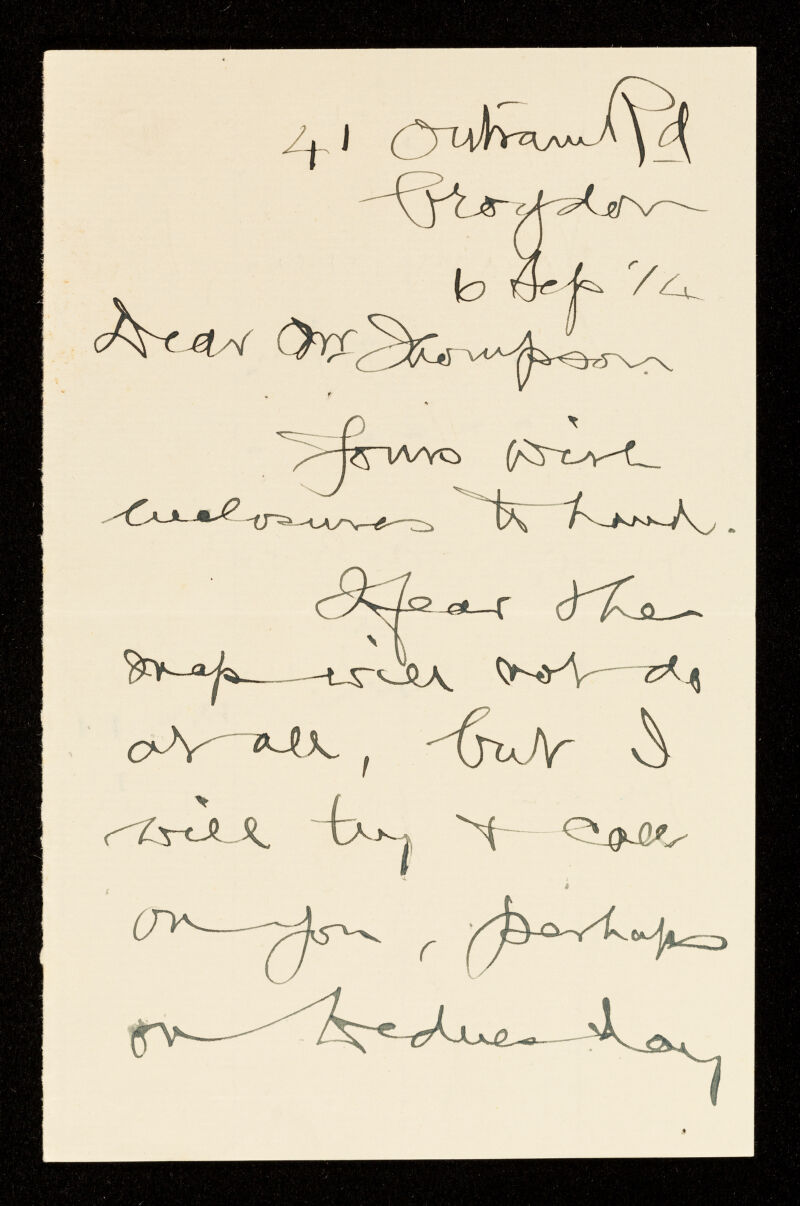 41 Outram Rd
Croydon
6 Sep '14
Dear Mr Thompson
Yours with
enclosures to hand.
I fear the
map will not do
at all, but I
will try & call
on you, perhaps
on Wednesday